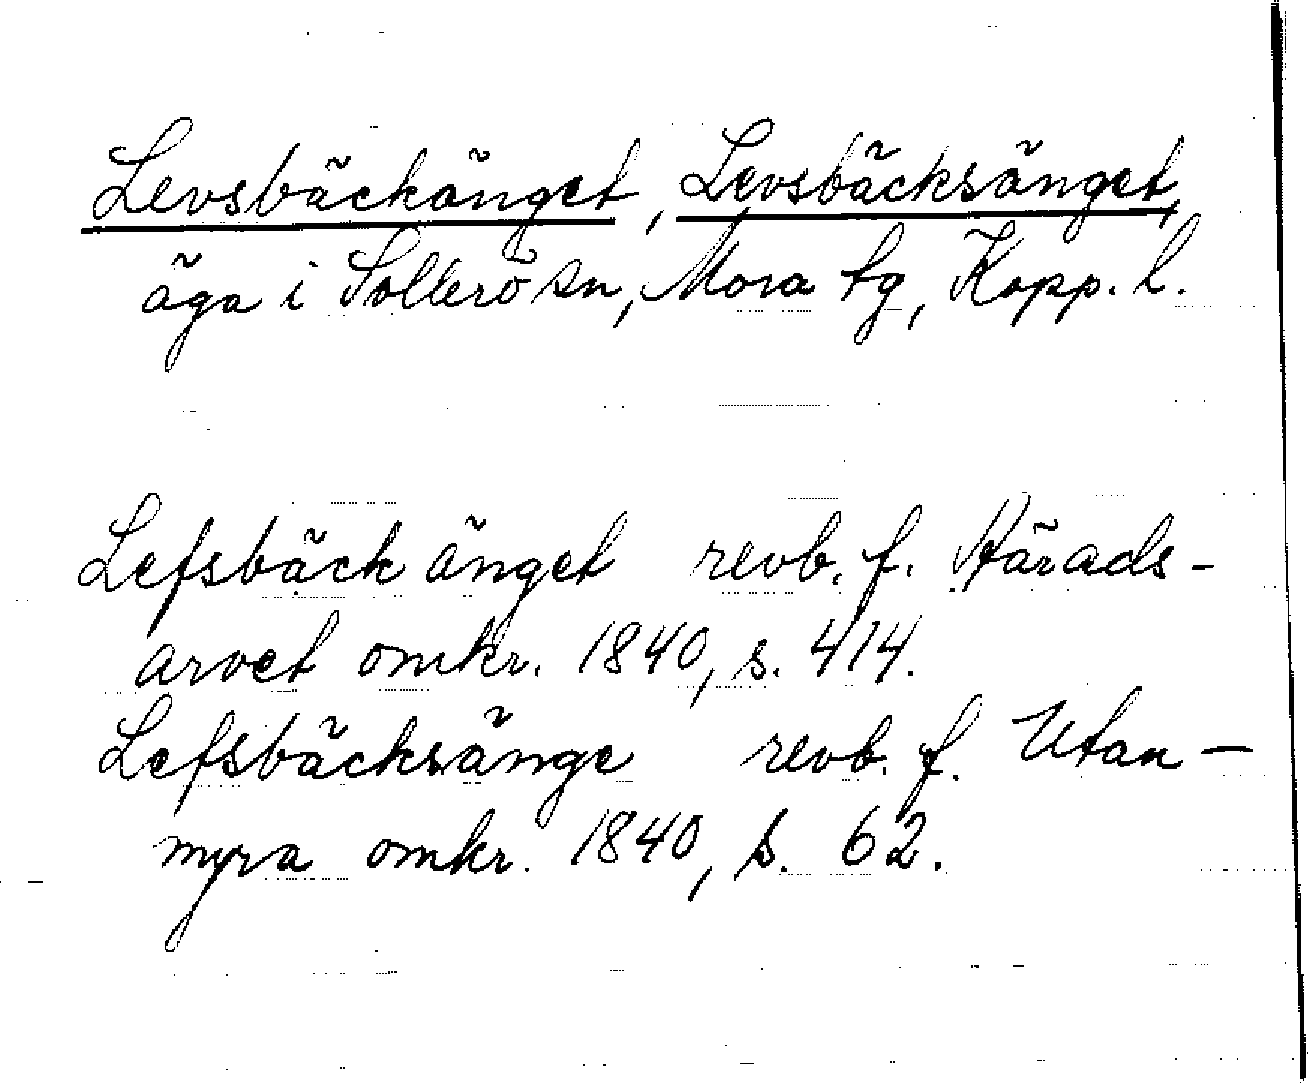 Levsbäckänget, Levsbäcksänget,
äga i Sollerö sn, Mora tg, Kopp. l.
Lefsbäck änget revb. f. Härads-
arvet omkr. 1840, s. 414.
Lefsbäcksänge revb. f. Utan-
myra omkr. 1840, s. 62.